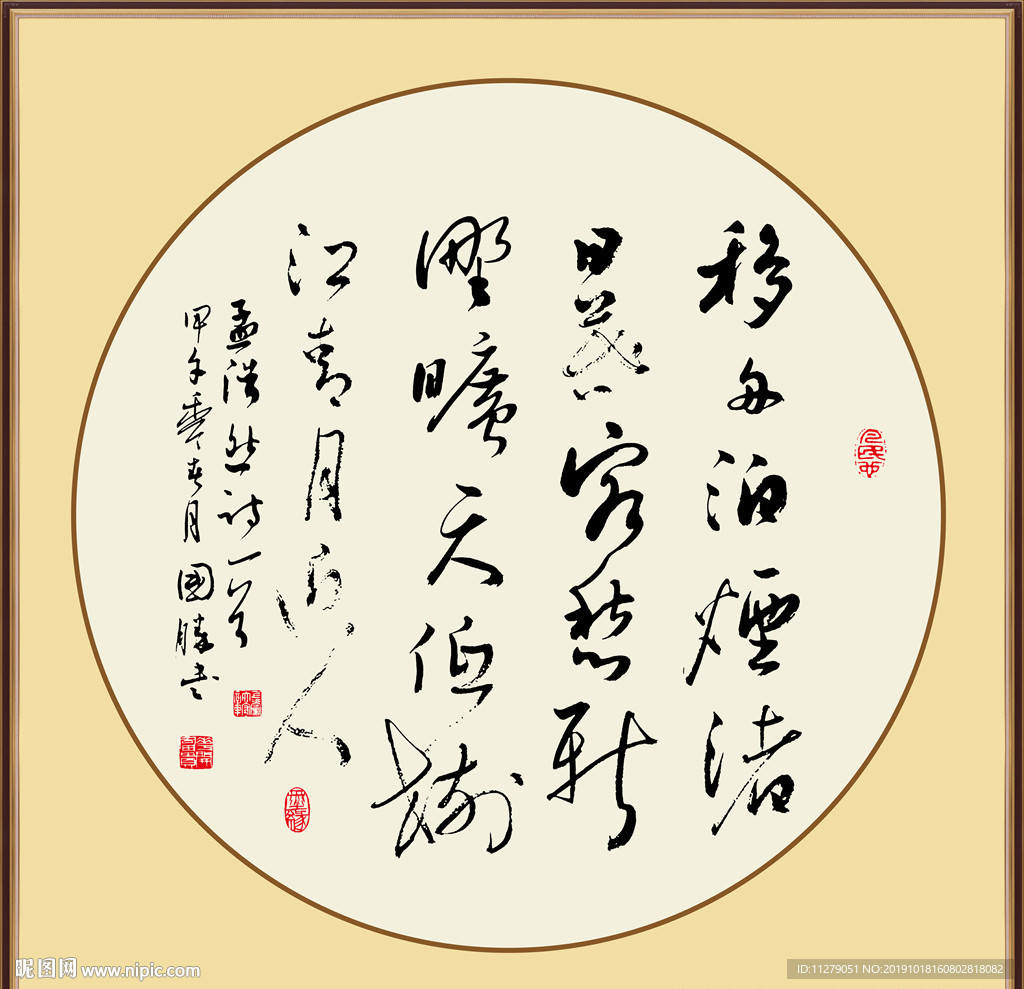 移舟泊煙渚
日暮客愁新
野曠天低樹
江清月近人
孟浩然詩一首
甲午春月國勝書
昵图网 www.nipic.com
ID:11279051 NO:20191018160802818082